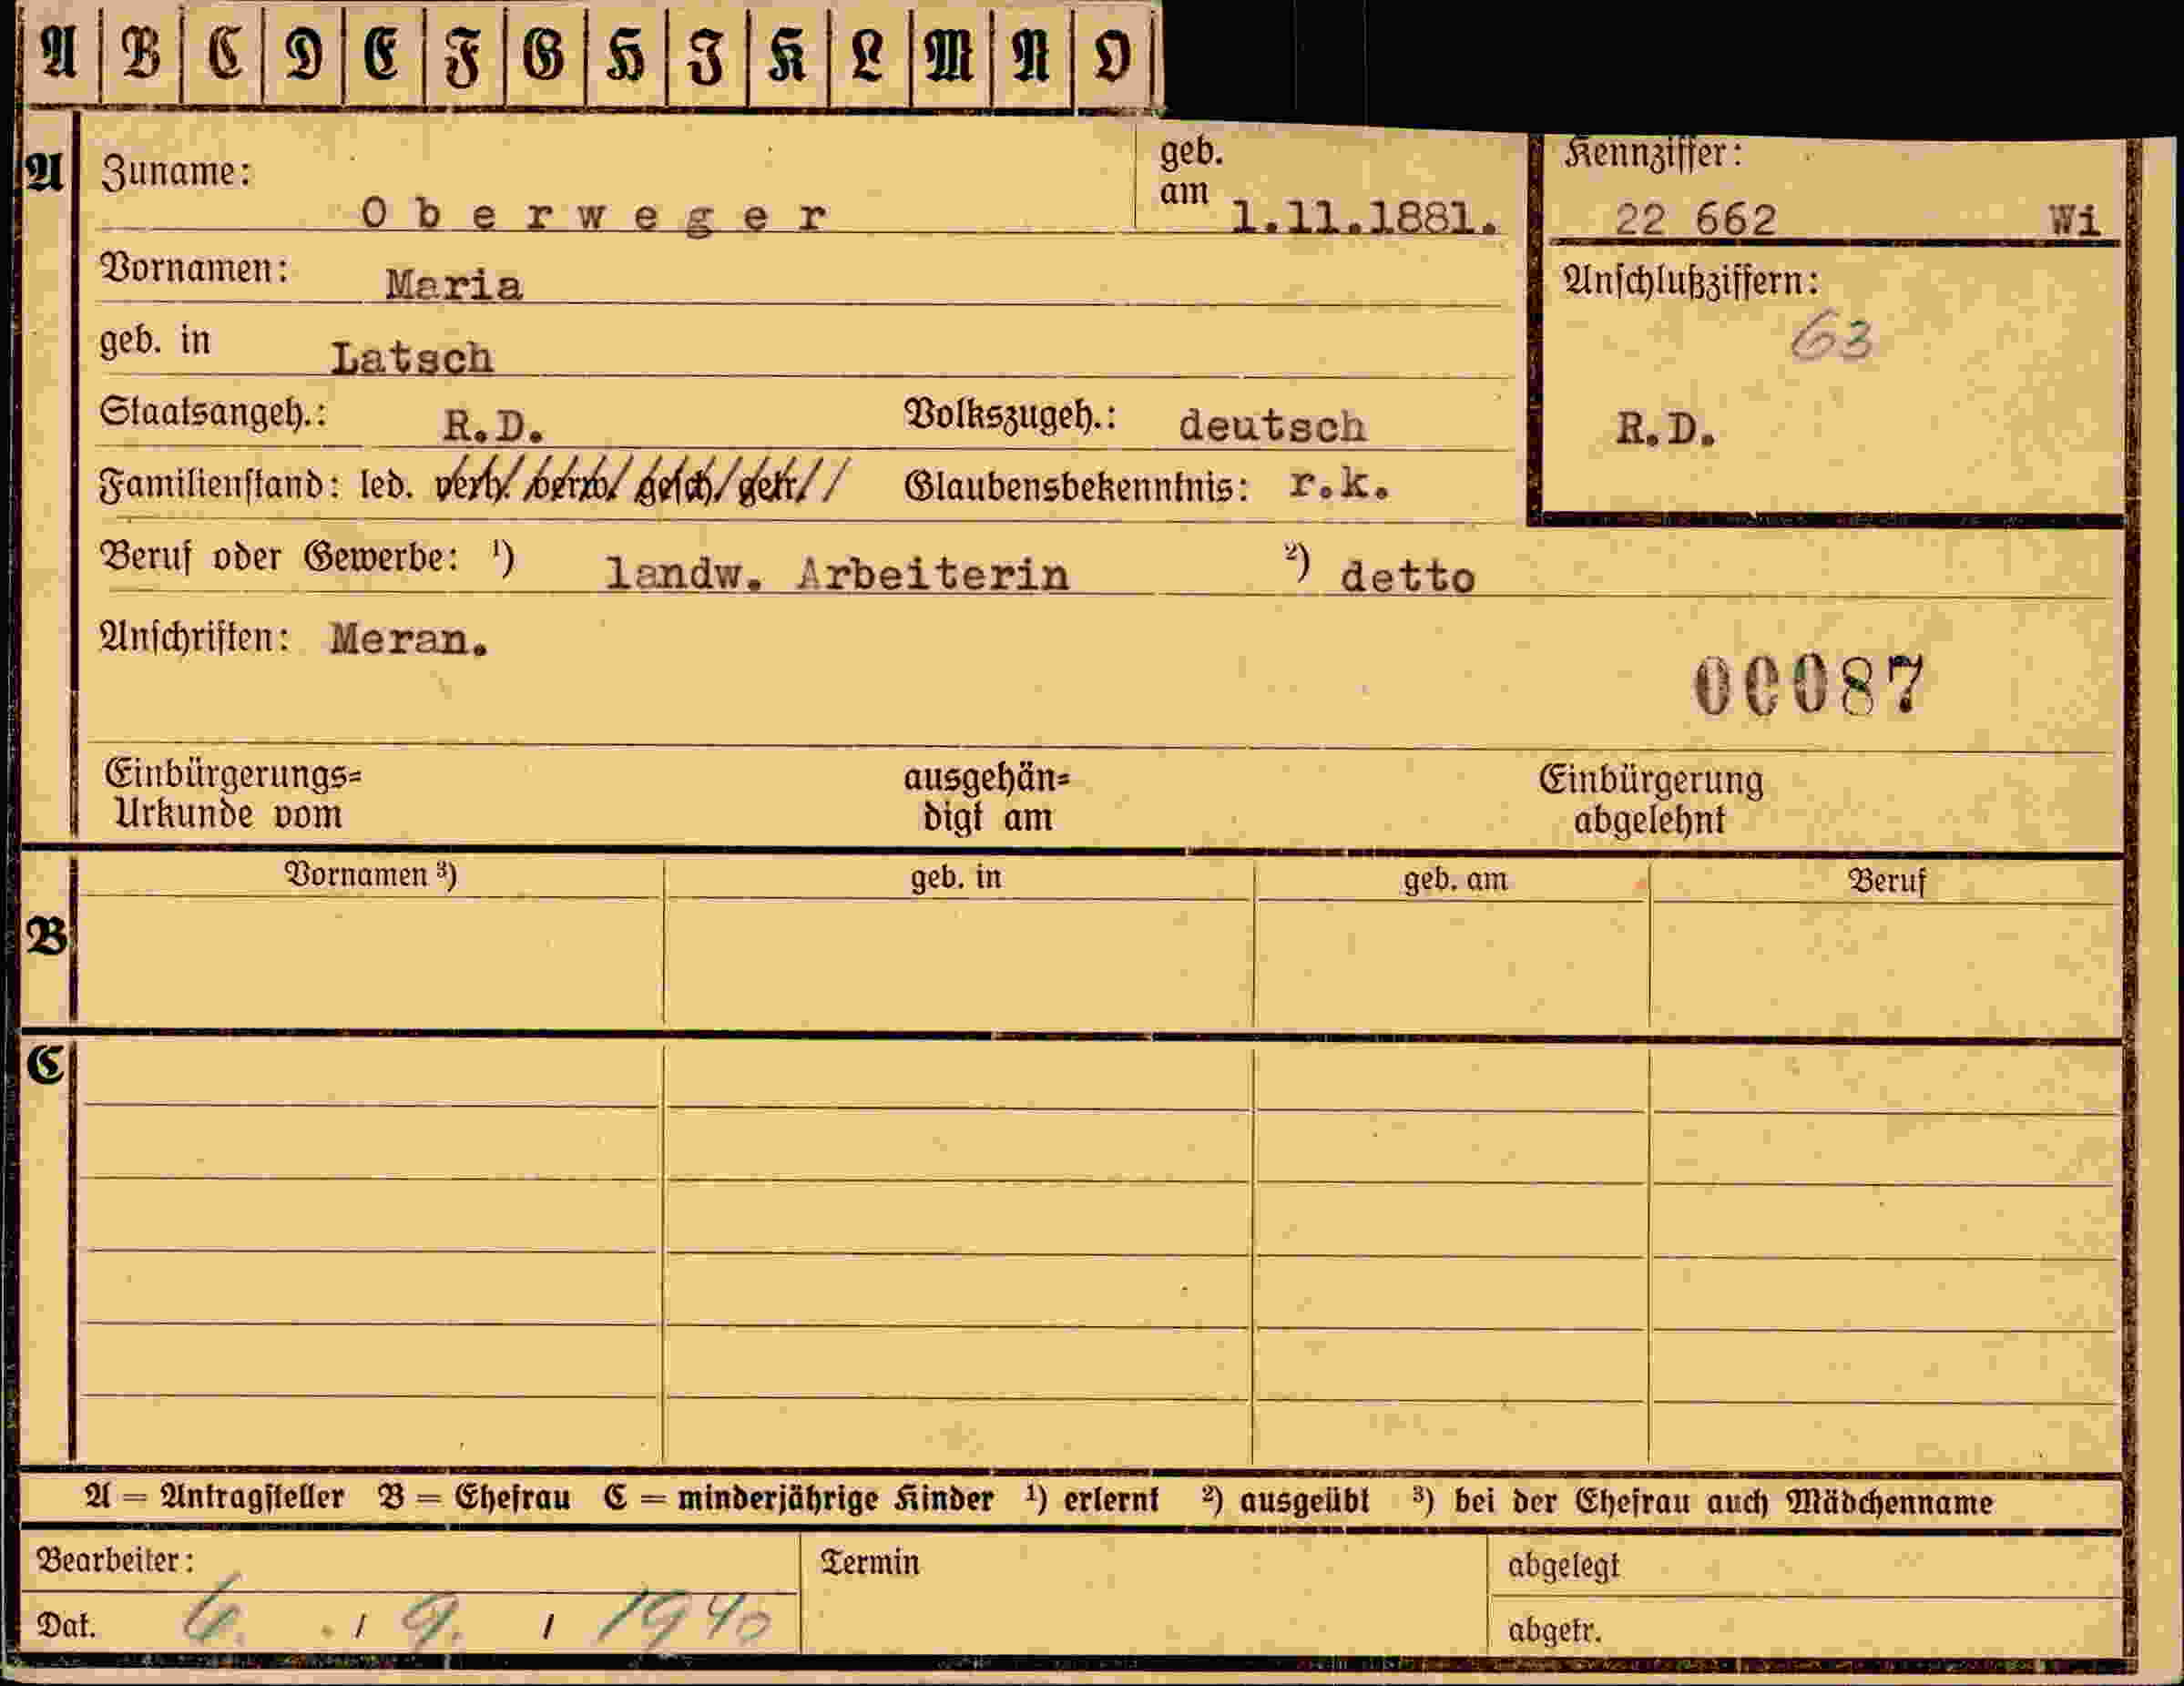 A B C D E F G H I K L M N O
A Zuname: Oberweger geb. am 1.11.1881. Kennziffer: 22 662 Wi
Vornamen: Maria
Anschlußziffern: 63
geb. in Latsch
Staatsangeh.: R.D. Volkszugeh.: deutsch R.D.
Familienstand: led. verh. verw. gesch. getr. Glaubensbekenntnis: r.k.
Beruf oder Gewerbe: ¹) landw. Arbeiterin ²) detto
Anschriften: Meran.
00087
Einbürgerungs= ausgehän= Einbürgerung
Urkunde vom digt am abgelehnt
Vornamen ³) geb. in geb. am Beruf
B
C
A = Antragsteller B = Ehefrau C = minderjährige Kinder ¹) erlernt ²) ausgeübt ³) bei der Ehefrau auch Mädchenname
Bearbeiter: Termin abgelegt
Dat. 6. / 9. / 1940 abgetr.